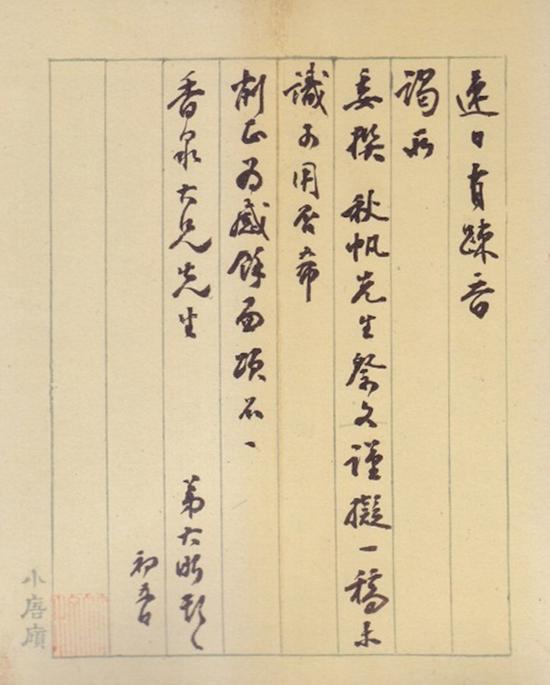 連日有疎晉
謁所
委撰 秋帆先生祭文謹擬一稿未
識可用否希
削正為感餘面頌不一
香泉大兄先生
弟大昕頓〻
初五日
小唐